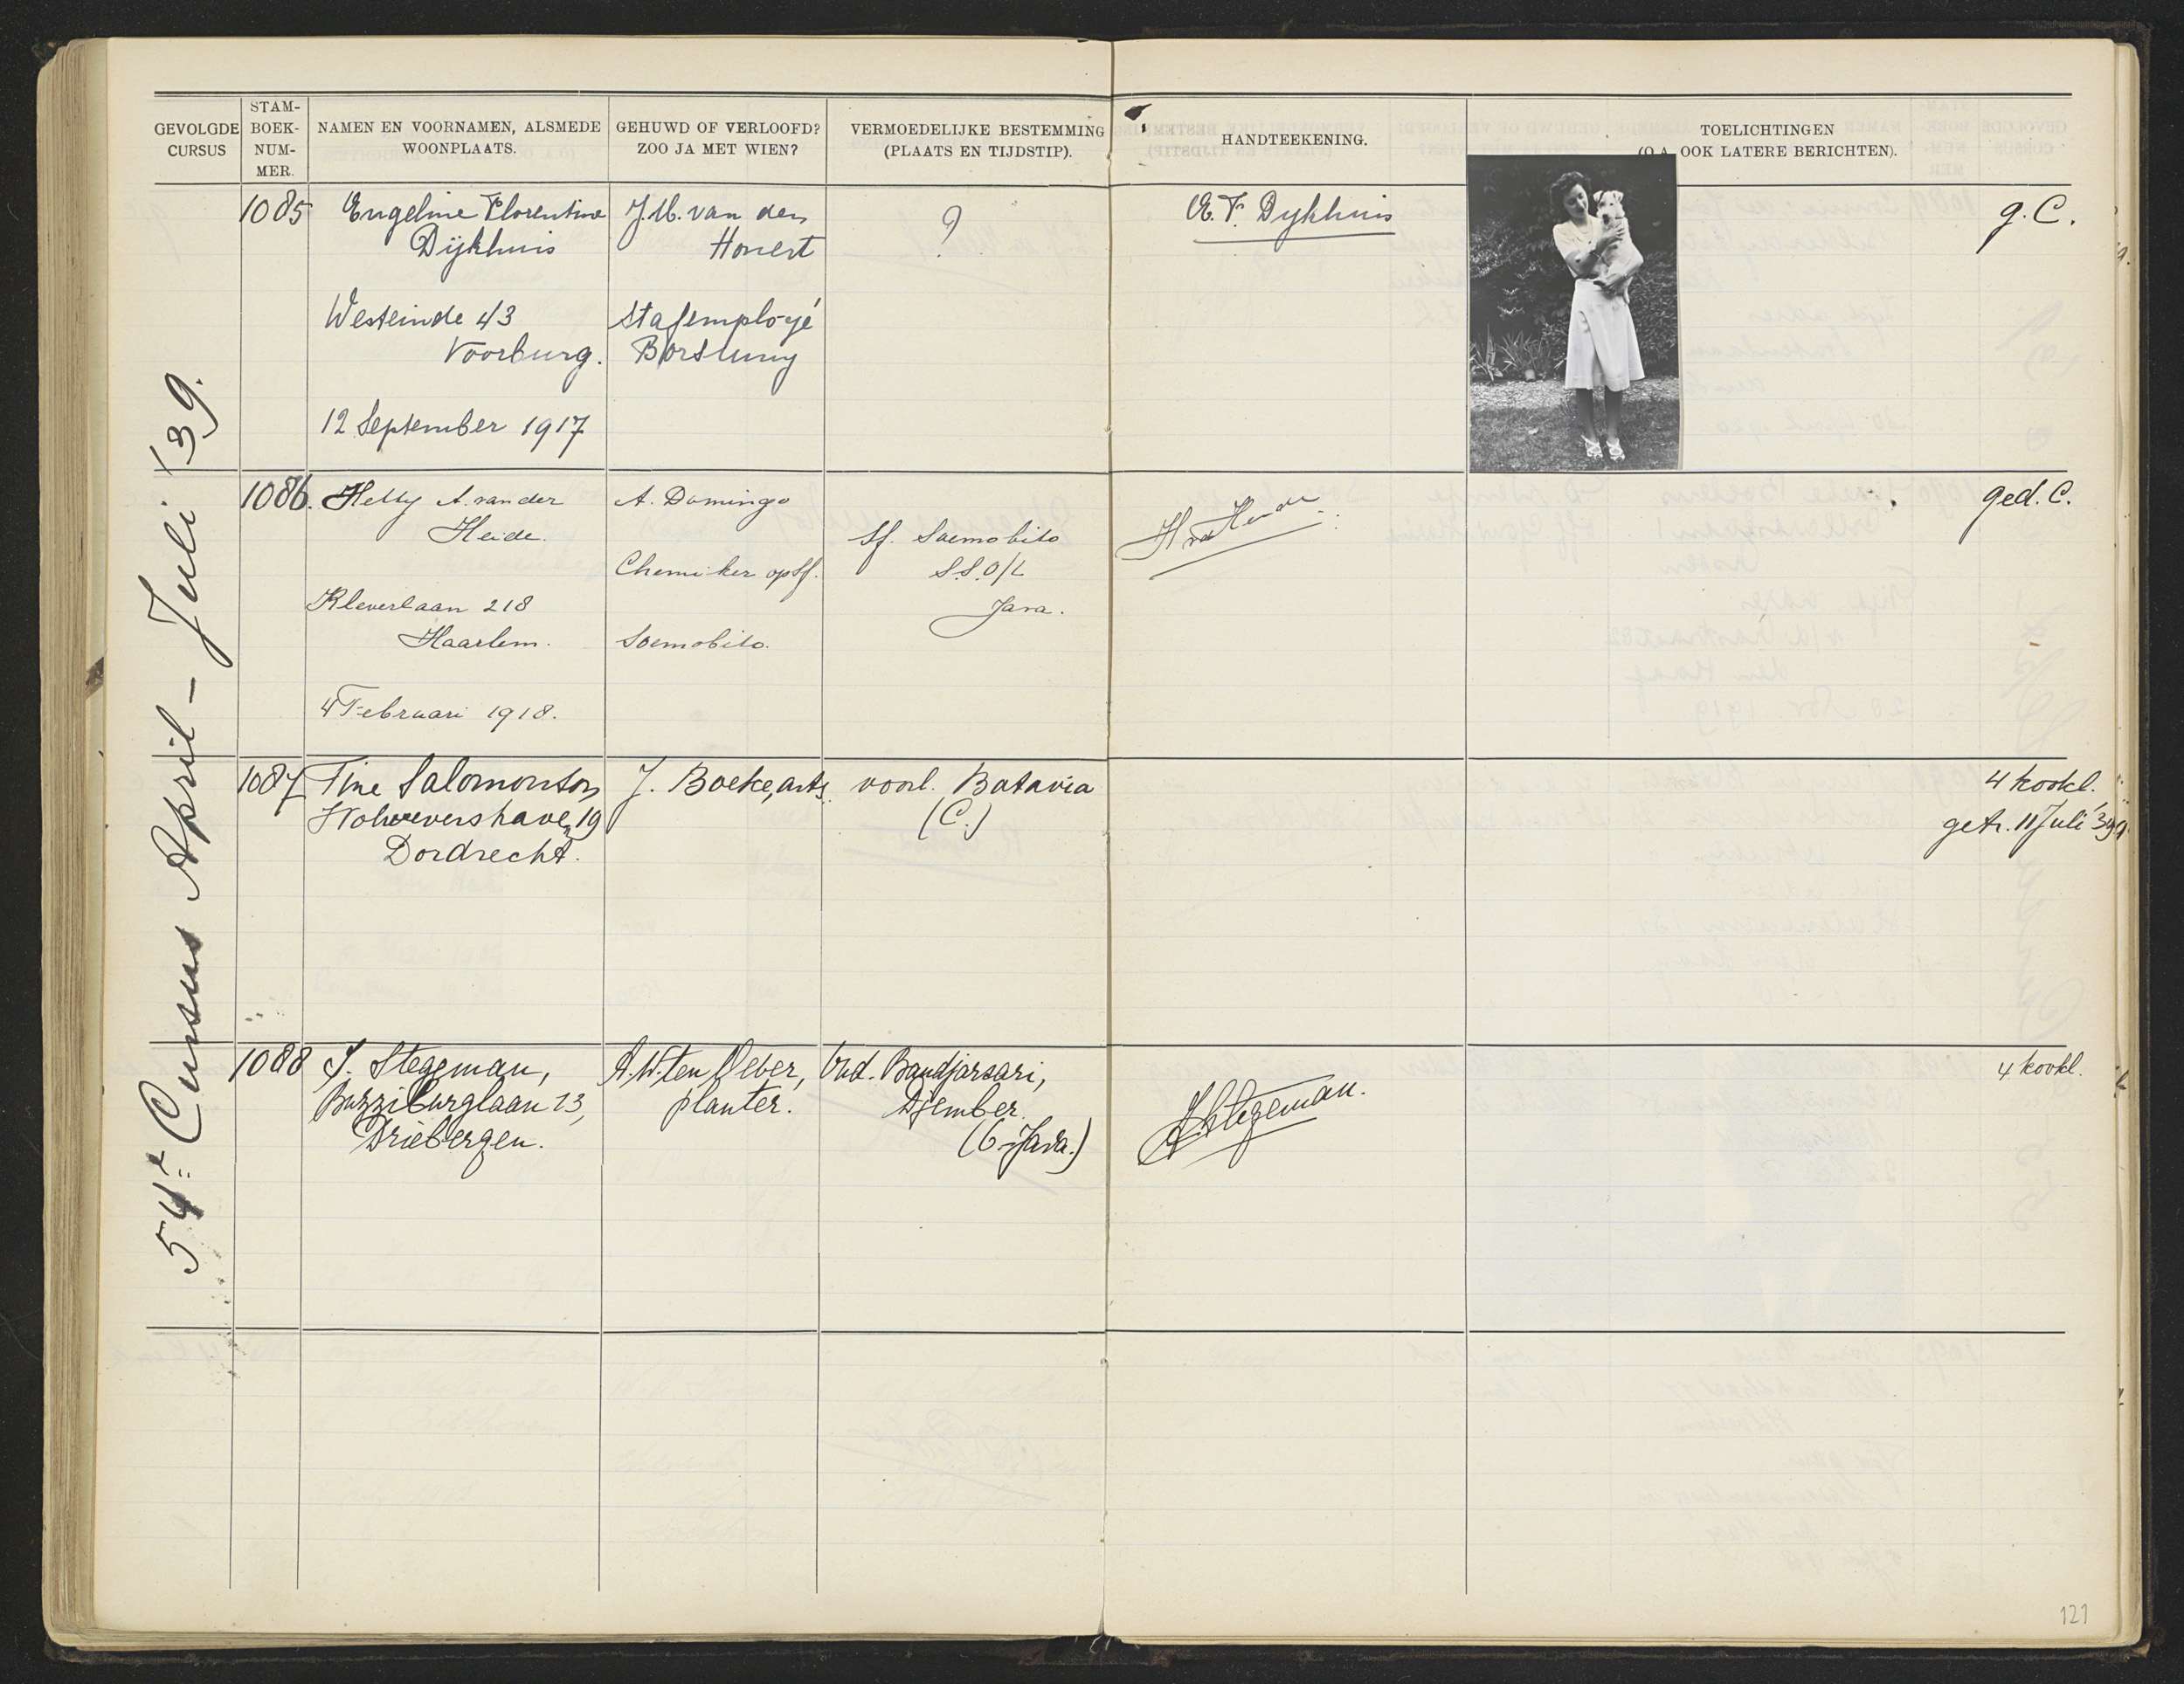 GEVOLGDE CURSUS
STAM-BOEK-NUM-MER.
NAMEN EN VOORNAMEN, ALSMEDE WOONPLAATS.
GEHUWD OF VERLOOFD? ZOO JA MET WIEN?
VERMOEDELIJKE BESTEMMING (PLAATS EN TIJDSTIP).
HANDTEEKENING.
TOELICHTINGEN
(O.A. OOK LATERE BERICHTEN).
54e Cursus April - Juli '39.
1085
Engeline Florentine
Dijkhuis
Westeinde 43
Voorburg.
12 September 1917
J.M. van den
Honert
Stafemployé
Borsumy
?
E. F. Dykhuis
g. C.
1086.
Helly A. van der
Heide.
Kleverlaan 218
Haarlem.
4 Februari 1918.
A. Domingo
Chemiker op Sf.
Soemobito.
Sf. Soemobito
S.S. O/L
Java.
H vd Heide
ged. C.
1087
Tine Salomonson
19
Dordrecht.
J. Boeke, arts.
voorl. Batavia
(C.)
4 kookl.
getr. 11 Juli '39
1088
J. Stegeman,
13,
Driebergen.
A.W. ten Oever,
planter.
Ond. Bandjarsari,
Djember.
(O-Java.)
JStegeman.
4 kookl.
121